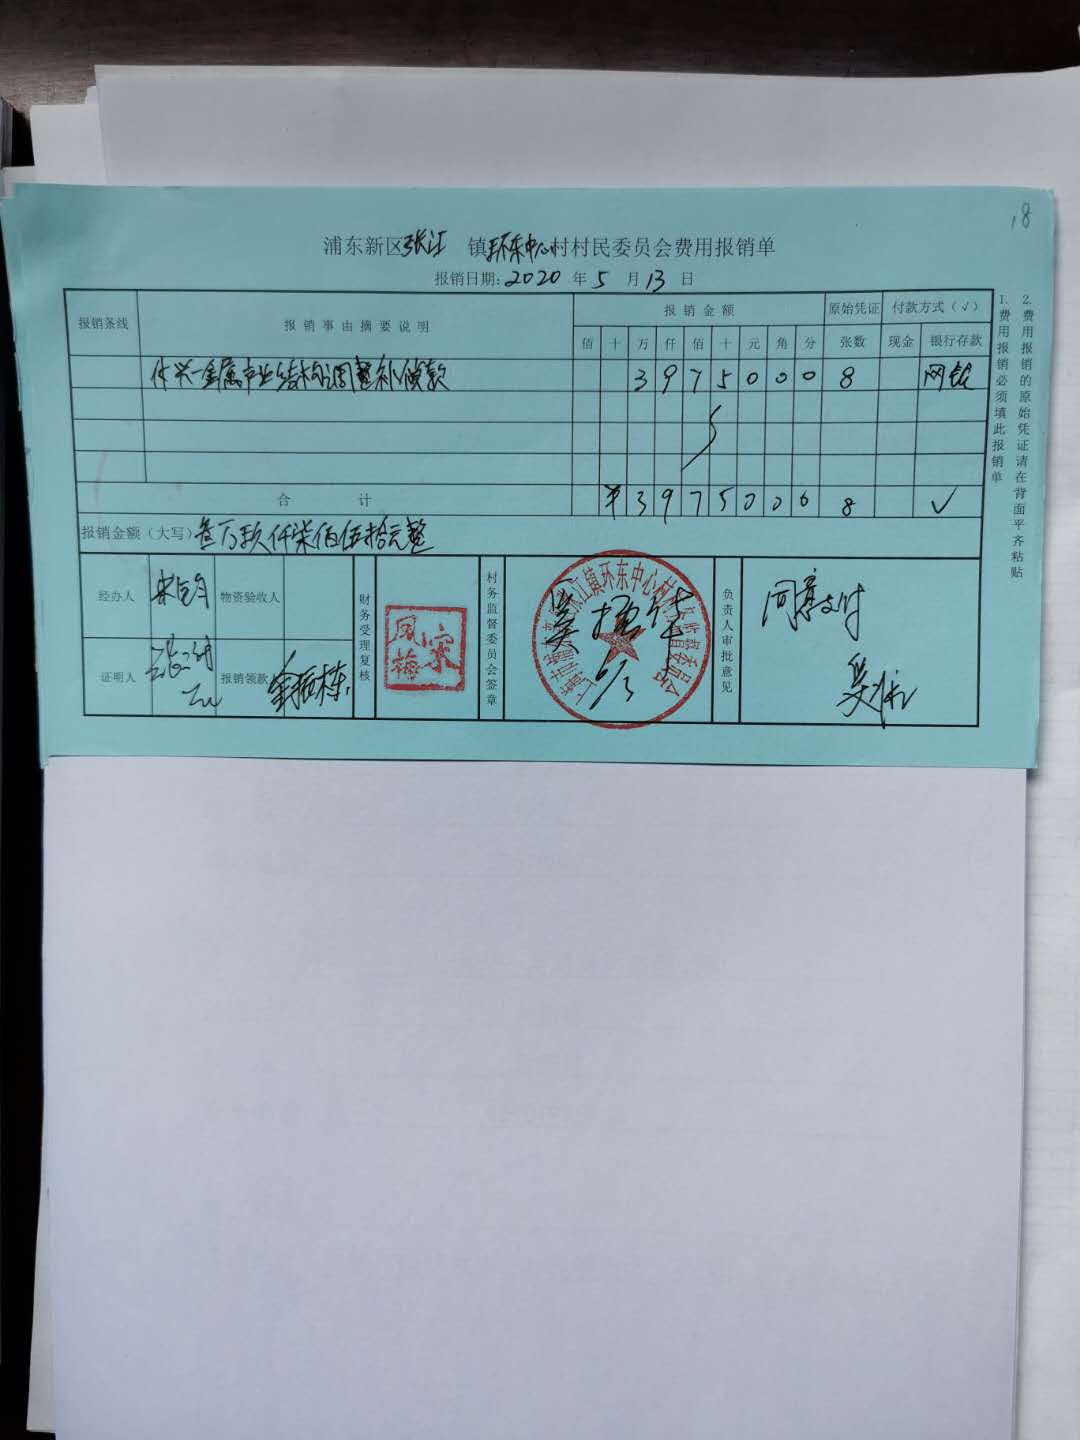 18
浦东新区张江 镇环东中心村村民委员会费用报销单
报销日期: 2020 年 5 月 13 日
报销条线 报销事由摘要说明 报销金额 原始凭证 付款方式（√）
佰 十 万 仟 佰 十 元 角 分 张数 现金 银行存款
金属产业结构调整补偿款 3 9 7 5 0 0 0 8 网银
合计 ¥ 3 9 7 5 0 0 0 8 √
报销金额（大写） 叁万玖仟柒佰伍拾元整
经办人 物资验收人 财务受理复核 凤梅 宋 村务监督委员会签章 负责人审批意见 同意支付
证明人 报销领款人 金振栋
张江镇环东中心村村务监督委员会
6/3
1.费用报销必须填此报销单
2.费用报销的原始凭证请在背面平齐粘贴